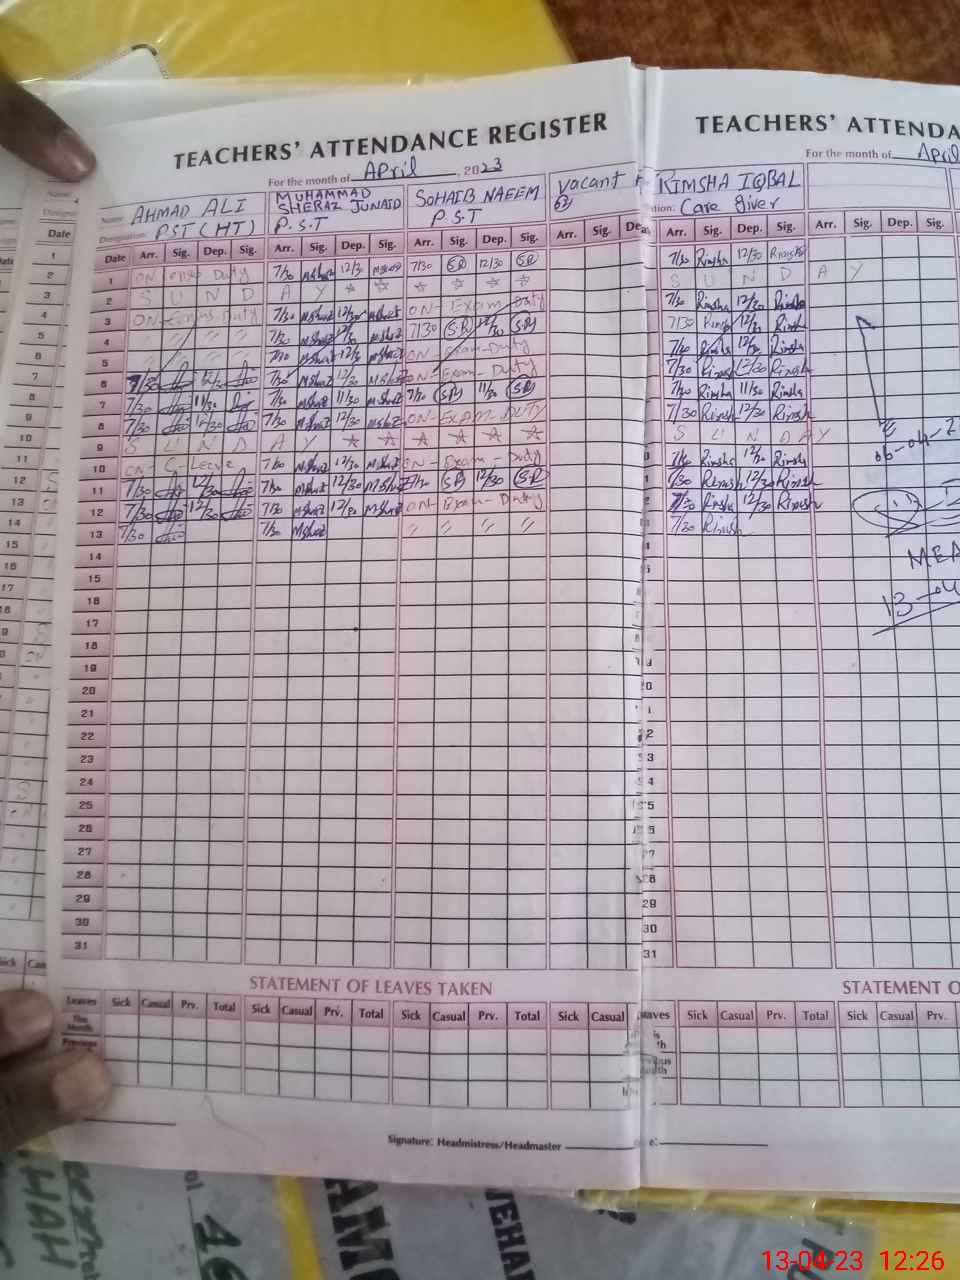 TEACHERS' ATTENDANCE REGISTER
For the month of April, 2023
Name: AHMAD ALI MUHAMMAD SHERAZ JUNAID SOHAIB NAEEM Vacant
Designation: PST (HT) P.S.T P.S.T
Date Arr. Sig. Dep. Sig. Arr. Sig. Dep. Sig. Arr. Sig. Dep. Sig. Arr. Sig. Dep.
1 ON Duty 7/30 12/30 7/30 SR 12/30 SR
2 S U N D A Y ☆ ☆ ☆ ☆ ☆ ☆
3 ON- Duty 7/30 Msheraz 12/30 Msheraz ON - Exam - Duty
4 " " " " 7/30 Msheraz 12/30 Msheraz 7/30 SR 12/30 SR
5 " " " " 7/30 Msheraz 12/30 Msheraz ON - Exam - Duty
6 7/30 12/30 7/30 Msheraz 12/30 Msheraz ON - Exam - Duty
7 7/30 11/30 7/30 Msheraz 11/30 Msheraz 7/30 SR 11/30 SR
8 7/30 12/30 7/30 Msheraz 12/30 Msheraz ON - EXAM - DUTY
9 S U N D A Y ☆ ☆ ☆ ☆ ☆ ☆
10 ON - C- Leave 7/30 Msheraz 12/30 Msheraz ON - Exam - Duty
11 7/30 12/30 7/30 Msheraz 12/30 Msheraz 7/30 SR 12/30 SR
12 7/30 12/30 7/30 Msheraz 12/30 Msheraz ON - Exam - Duty
13 7/30 7/30 Msheraz " " " "
14
15
16
17
18
19
20
21
22
23
24
25
26
27
28
29
30
31
STATEMENT OF LEAVES TAKEN
Leaves Sick Casual Prv. Total Sick Casual Prv. Total Sick Casual Prv. Total Sick Casual
This Month
Previous
Signature: Headmistress/Headmaster
TEACHERS' ATTENDA
For the month of April
RIMSHA IQBAL
tion: Care giver
Arr. Sig. Dep. Sig. Arr. Sig. Dep. Sig.
7/30 Rimsha 12/30 Rimsha
S U N D A Y
7/30 Rimsha 12/30 Rimsha
7/30 Rimsha 12/30 Rimsha
7/30 Rimsha 12/30 Rimsha
7/30 Rimsha 12/30 Rimsha
7/30 Rimsha 11/30 Rimsha
7/30 Rimsha 12/30 Rimsha
S U N D A Y
7/30 Rimsha 12/30 Rimsha
7/30 Rimsha 12/30 Rimsha
7/30 Rimsha 12/30 Rimsha
7/30 Rimsha
06-04-2
MEA
13-04
29
30
31
STATEMENT O
Sick Casual Prv. Total Sick Casual Prv.
13-04-23 12:26